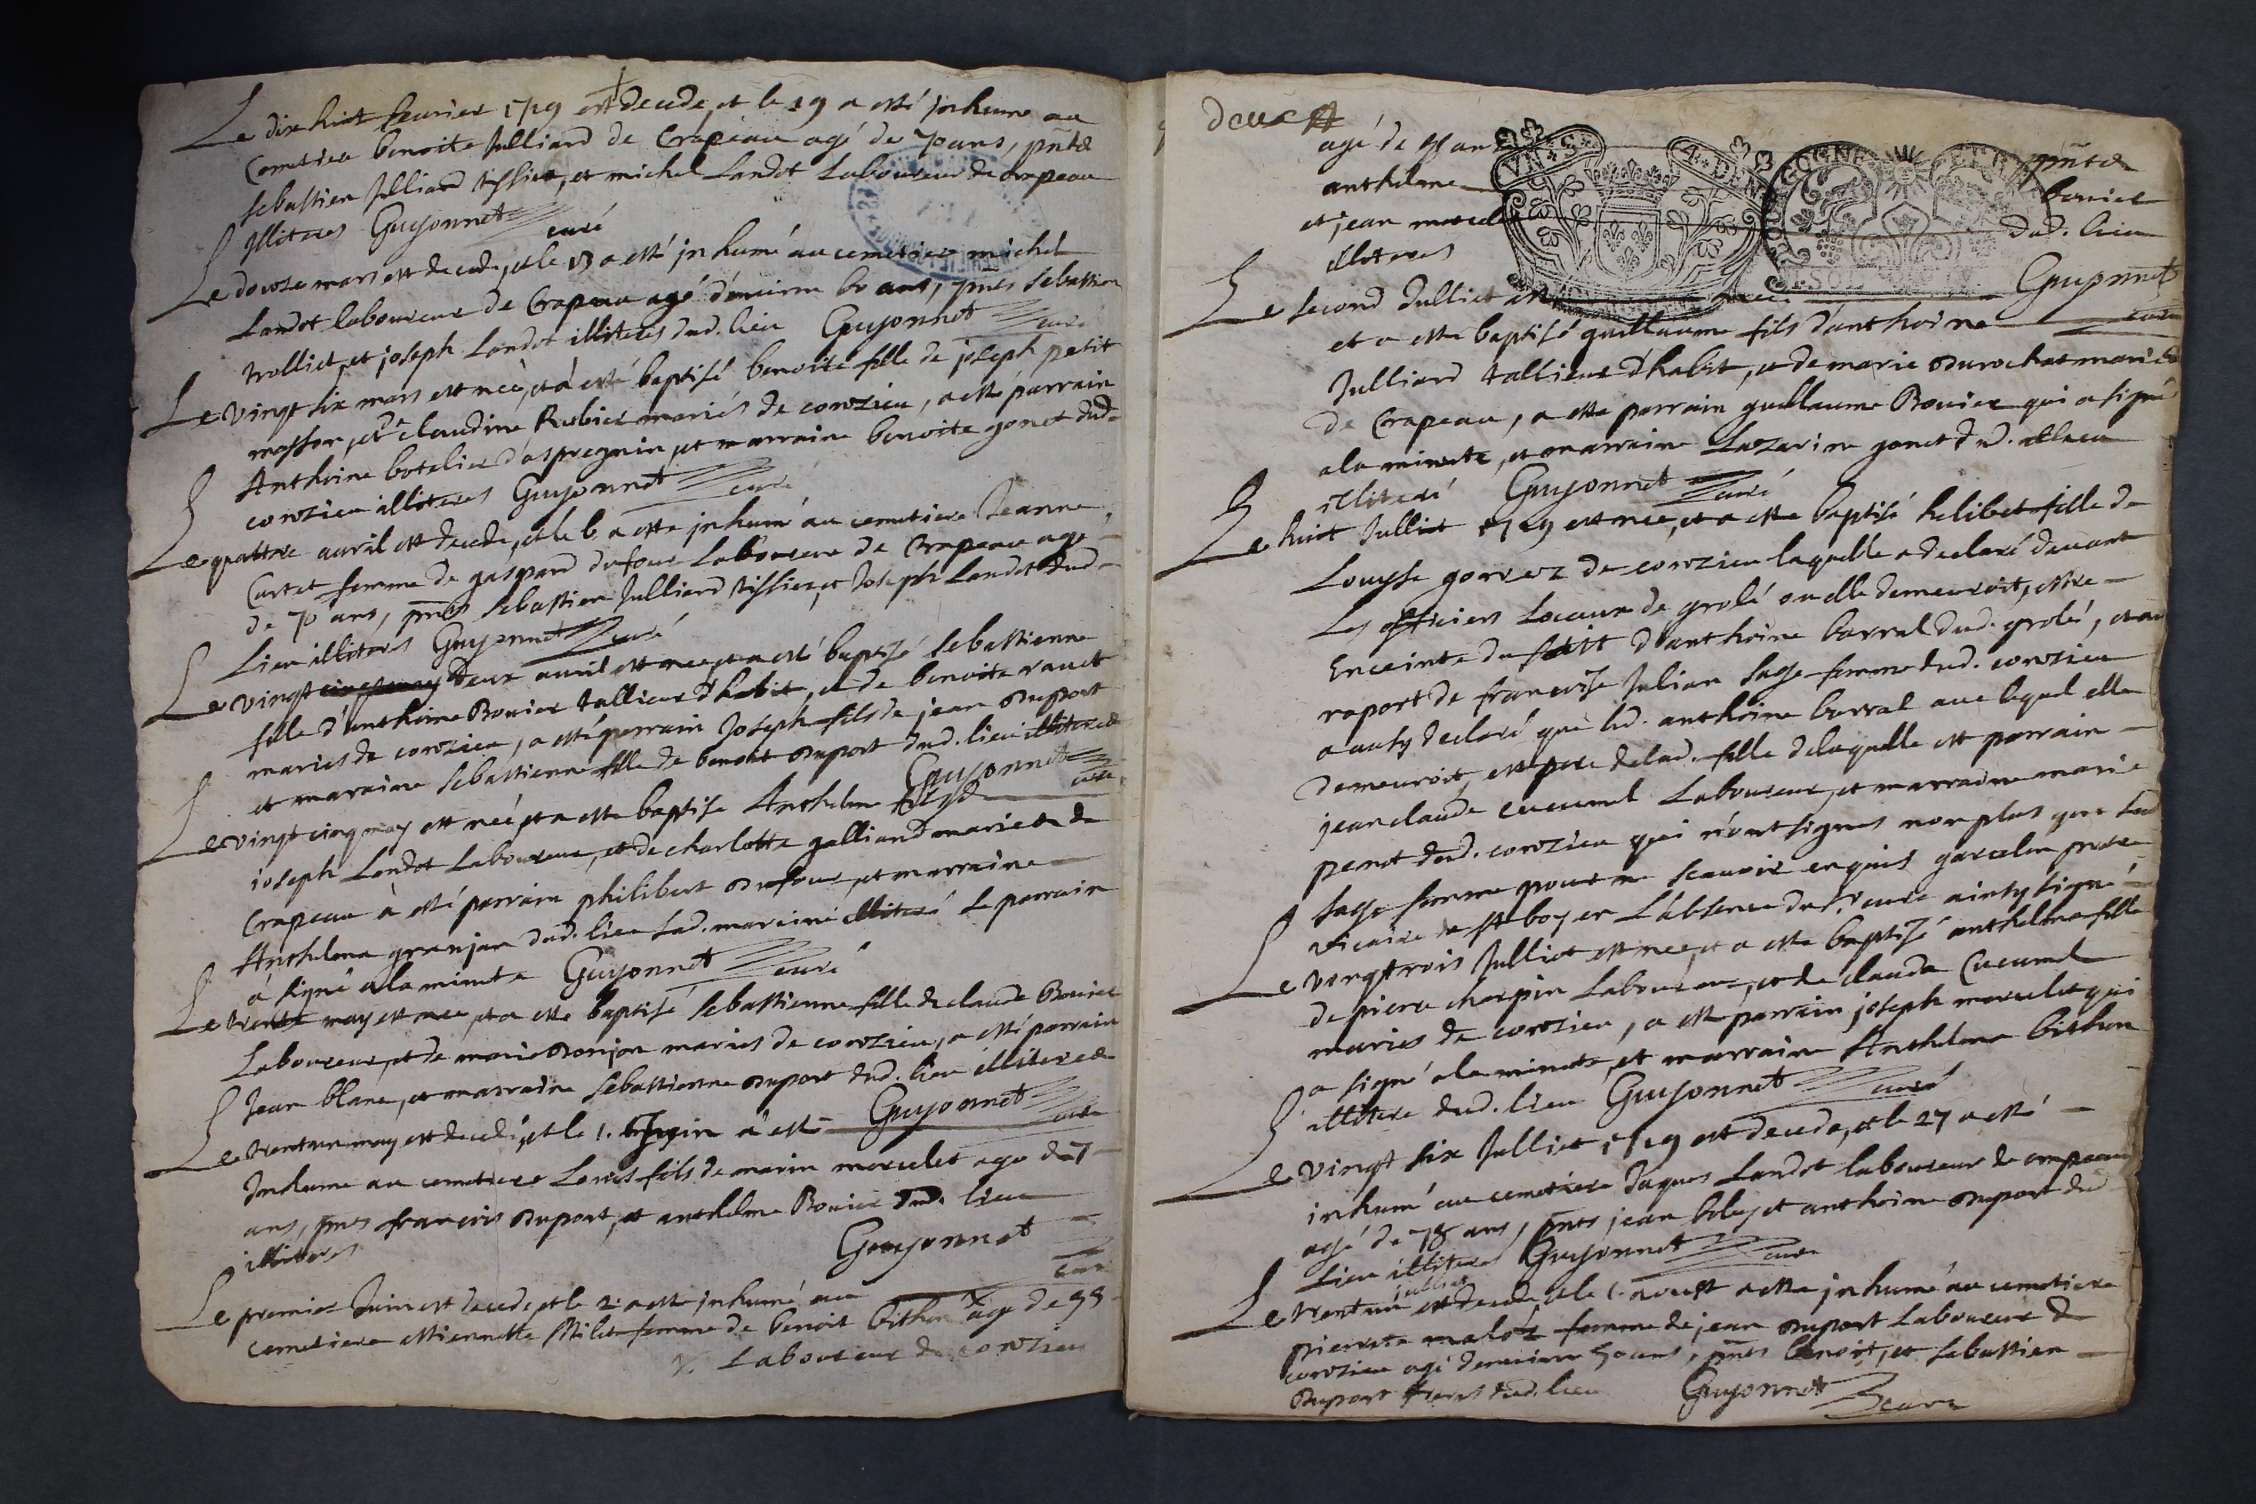 Le dix huit feurier 1719 est decede, et le 19 a esté inhume au
Cemetiere benoite Julliard de Crapeau agé de 70 ans, pnts
sebastien Julliard tissier, et michel Landot Laboureur de crapeau
illiteres Guyonnet curé
Le douze mars est decede, et le 13 a esté inhumé au cemetiere michel
Landot laboureur de Crapeau agé d'enuiron 60 ans, pnts sebastien
trolliet, et joseph Landot illiteres dud. lieu Guyonnet curé
Le vingt six mars est née, et a esté baptisé benoite fille de joseph petit
masson, et de claudine Rubier mariés de corozieu, a esté parrain
Anthoine botelier d'aspregnin, et marraine benoite gonet dud.
corozieu illiteres Guyonnet curé
Le quattre auril est decede, et le 6 a este inhumé au cemetiere Jeanne
Curtet femme de gaspard dufour Laboureur de Crapeau age
de 70 ans, pnts sebastien Julliard tissier, et Joseph Landot dud.
Lieu illiteres Guyonnet curé
Le vingt deux auril est nee, et a esté baptisé sebastienne
fille d'anthoine Bouier tallieur d'habit, et de benoite rauet
mariés de corozieu, a esté parrain Joseph fils de jean Duport
et maraine sebastienne fille de benoit Duport dud. lieu illiteres
Guyonnet curé
Le vingt cinq may est neé, et a este baptise Anthelme fils de
joseph Landot Laboureur, et de charlotte galliand mariés de
Crapeau à esté parrain philibert Dufour, et marraine
Anthelma granjan dud. lieu lad. maraine illiteré le parrain
à signé a la minute Guyonnet curé
Le trente may est nee, et a este baptisé sebastienne fille de claude Bouier
Laboureur, et de marie Donjon mariés de corozieu, a esté parrain
Jean blanc, et marraine sebastienne Duport dud. lieu illiteres
Guyonnet curé
Le trent un may est decedé, et le 1. Juin a esté
Inhume au cemetiere Louis fils de marin marcelet age de 7
ans, pnts francois Duport, et anthelme Bouier dud. lieu
illiteres Guyonnet curé
Le premier Juin est decede, et le 2 a esté inhumé au
cemetiere estiennette Milet femme de benoit bithon age de 55
Laboureur de corozieu
deux
agé de ans pnts
anthelme bouier
et jean marcelet dud. lieu
illiteres Guyonnet
curé
Le second Julliet
et a este baptisé guillaume fils d'anthoine
Julliard tallieur d'habit, et de marie Durochat mariés
de Crapeau, a este parrain guillaume Bouier qui a signé
a la minute, et marraine Lazarine gonet dud.
illiteré Guyonnet curé
Le huit Julliet 1719 est nee, et a este baptisé helibet fille de
Louyse gorrez de corozieu laquelle a declaré deuant
Les officiers Locaux de grolé ou elle demeuroit, estre
Enceinte du d'anthoine barral dud. grolé, et au
raport de francoise Julian sage femme dud. corozieu
a ausy declaré que led. anthoine barral auec lequel elle
demeuroit, est pere de lad. fille de laquelle est parrain
jean claude cucumel Laboureur, et marraine marie
penet dud. corozieu qui n'ont signes non plus que lad
sage femme pour ne scauoir enquis garcelon pretre
vicaire de st boy en L'absence dud. sr. curé ainsy signé
Le vingt trois Julliet est nee, et a este baptisé anthelma fille
de piere charpin Laboureur, et de claude Cucumel
mariés de corozieu, a esté parrain joseph marcelet qui
a signé a la minute, et marraine Anthelma bithon
illitere dud. lieu Guyonnet curé
Le vingt six Julliet 1719 est decede, et le 27 a esté
inhumé au cemetiere Jaques Landot laboureur de crapeau
agé de 78 ans, pnts jean et anthoine Duport dud
Lieu illiteres Guyonnet curé
Le trent un julliet est decede, et le 1. aoust a este inhumé au cemetiere
pierrete malot femme de jean Duport Laboureur de
corozieu agé denuiron 50 ans, pnts benoit, et sebastien
Duport freres dud. lieu Guyonnet curé